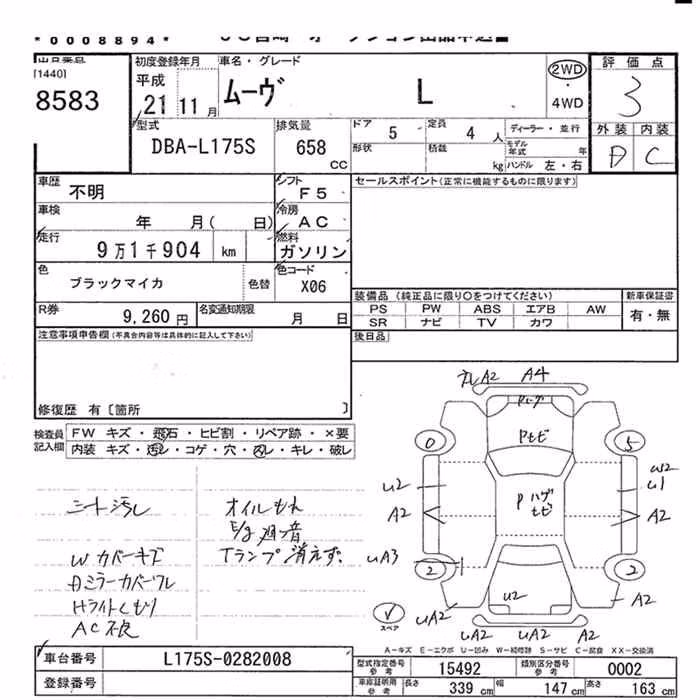 *0008894*
出品番号 初度登録年月 車名・グレード 評価点
[1440] 平成 2WD
8583 21 11月 ムーヴ L ・ 3
4WD
型式 排気量 ドア 5 定員 4人 ディーラー・並行 外装 内装
DBA-L175S 658 CC 形状 積載 kg モデル年式 年 D C
ハンドル 左・右
車歴 不明 シフト F5 セールスポイント(正常に機能するものに限ります)
車検 年 月( 日) 冷房 AC
走行 9万1千904 km 燃料 ガソリン
色 ブラックマイカ 色替 色コード X06
装備品 (純正品に限り○をつけてください) 新車保証書
PS PW ABS エアB AW 有・無
R券 9,260円 名変通知期限 月 日 SR ナビ TV カワ
注意事項申告欄(不具合内容等は具体的に記入して下さい) 後日品
修復歴 有〔箇所 〕
検査員 FW キズ・飛石・ヒビ割・リペア跡・×要
記入欄 内装 キズ・汚レ・コゲ・穴・凹レ・キレ・破レ
A2 A4
Pトビ
0 5
W2
U2 U1
Pハゲ
トビ
A2 A2
UA3
2 2
U2
UA2 A2
スペア
UA2 UA2 A2
シート汚レ オイルもれ
E/g 過音
Wカバーキズ Tランプ消えず
Dミラーカバーワレ
Hライトくもり
AC不良
A-キズ E-エクボ U-凹み W-補修跡 S-サビ C-腐食 XX-交換済
車台番号 L175S-0282008 型式指定番号 参考 15492 類別区分番号 参考 0002
登録番号 車庫証明用 参考 長さ 339 cm 幅 147 cm 高さ 163 cm